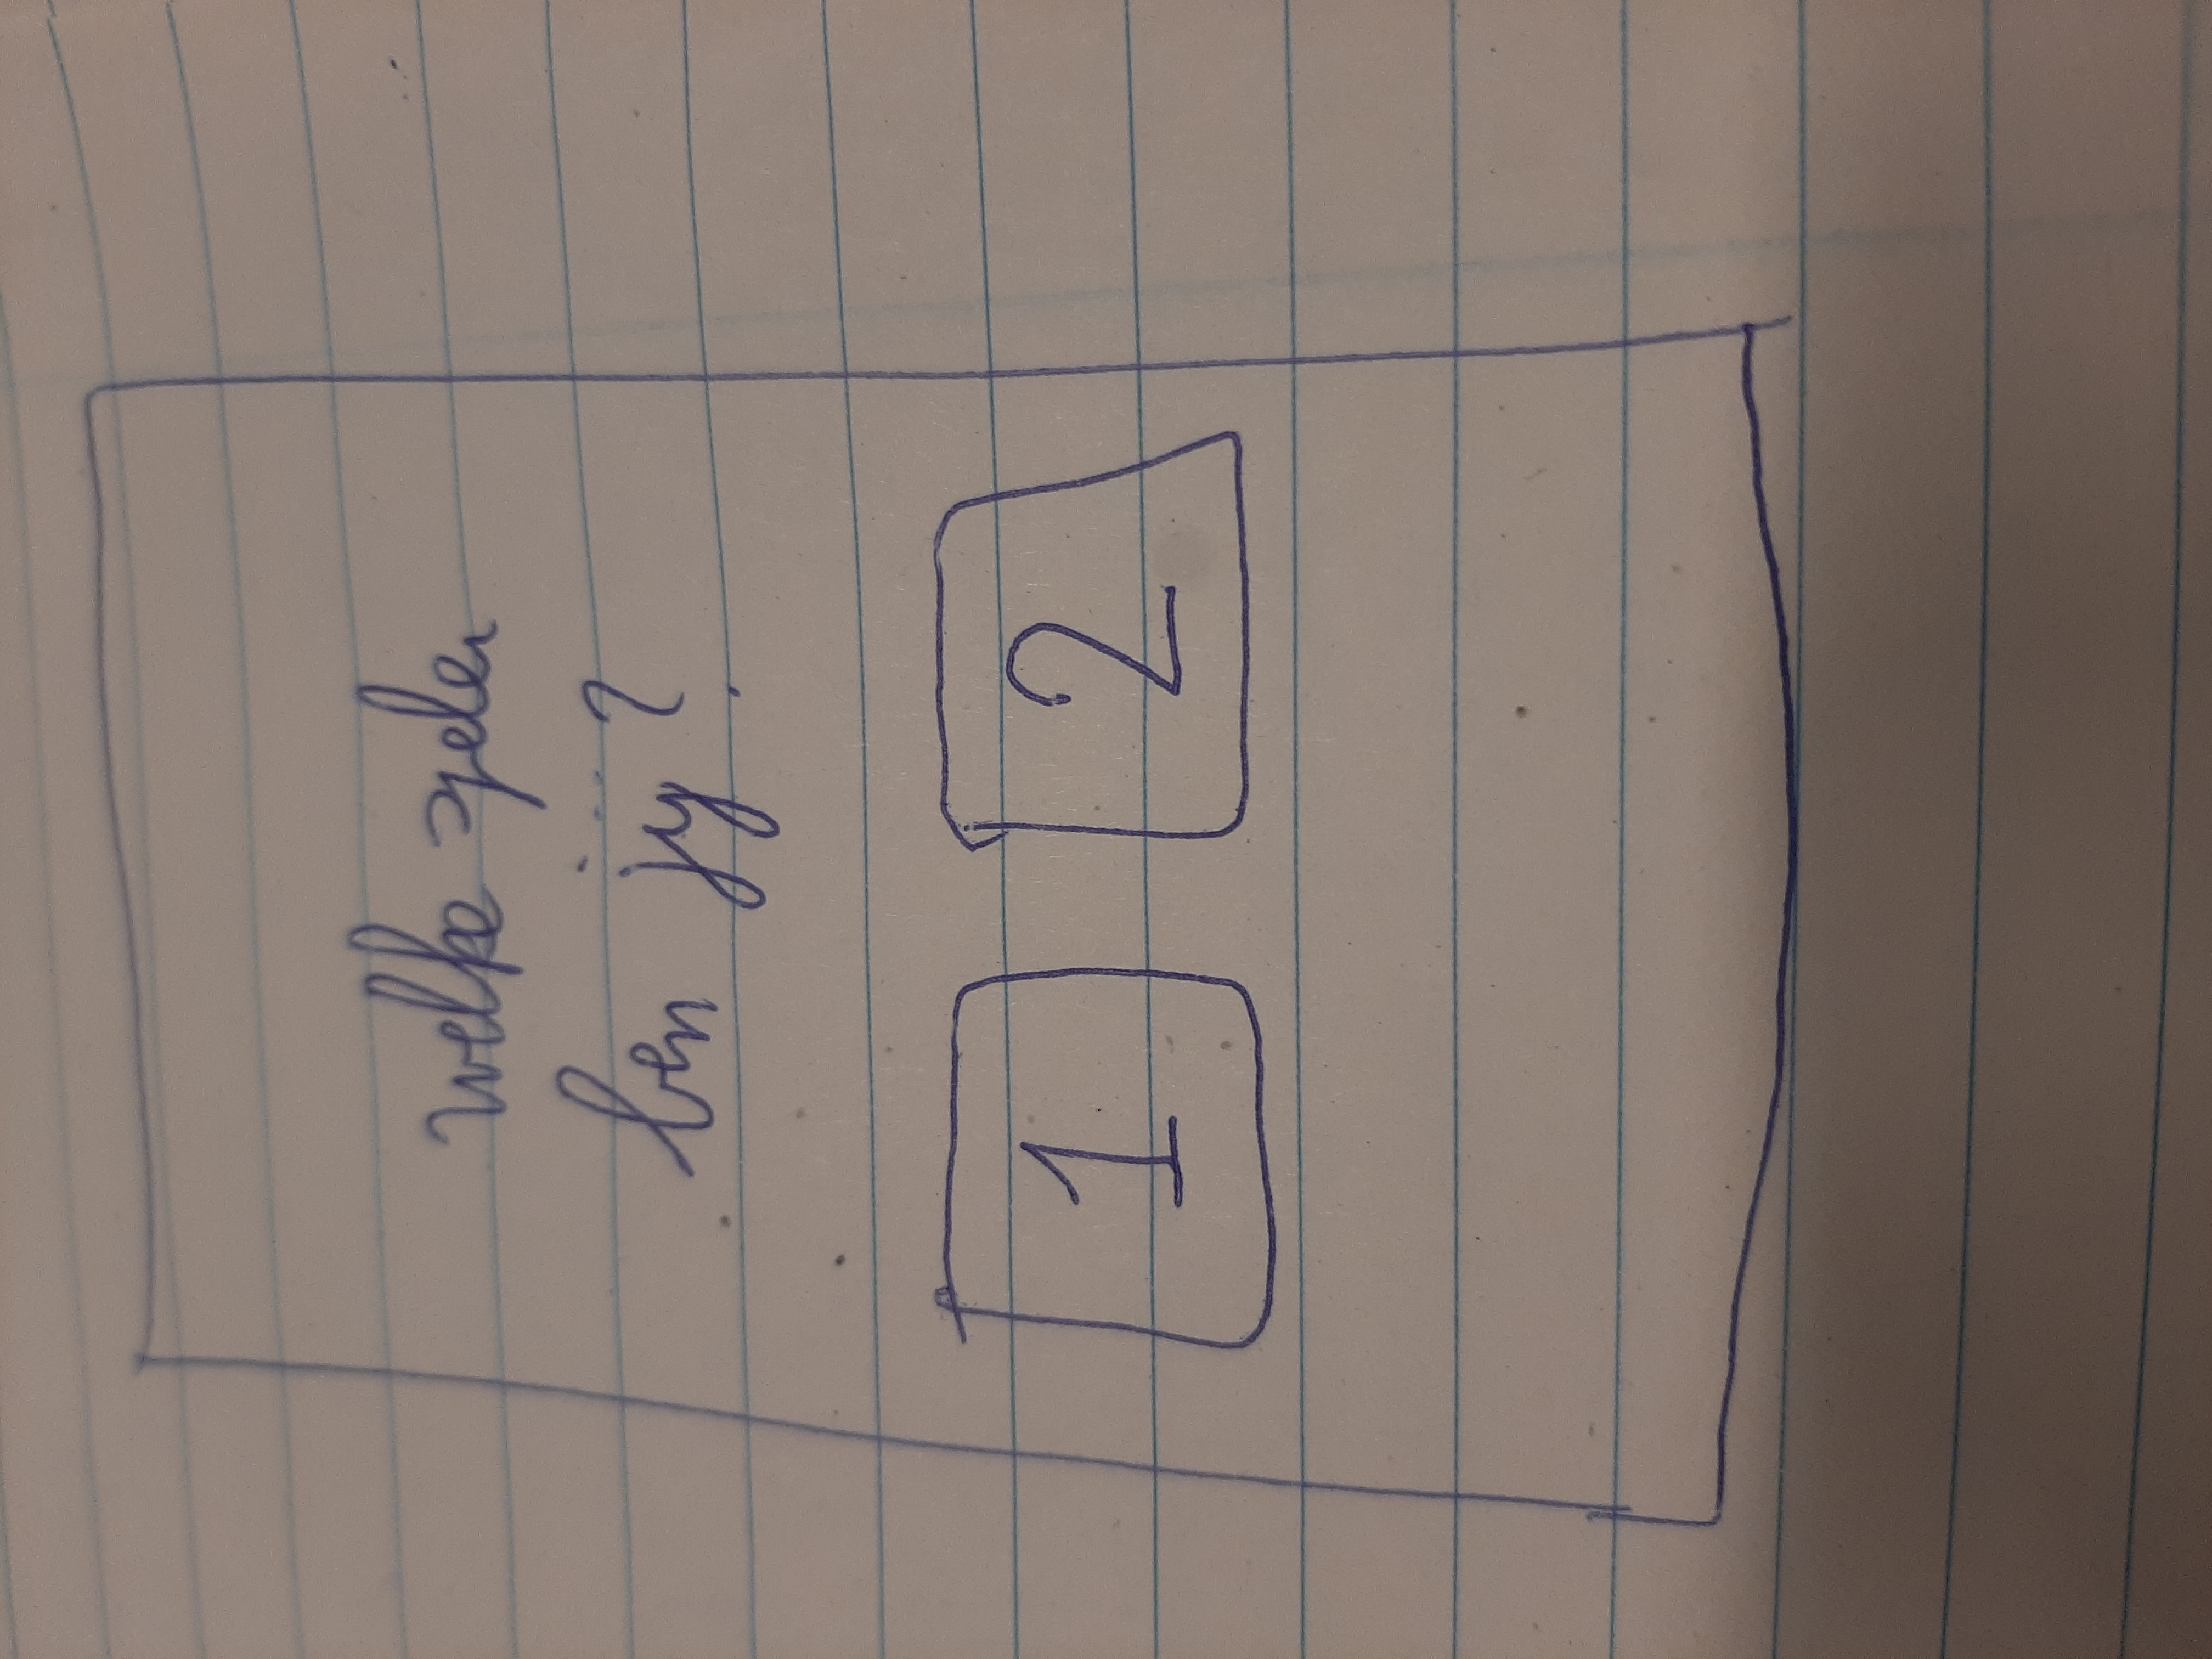 welke speler
ben jij?
1 2